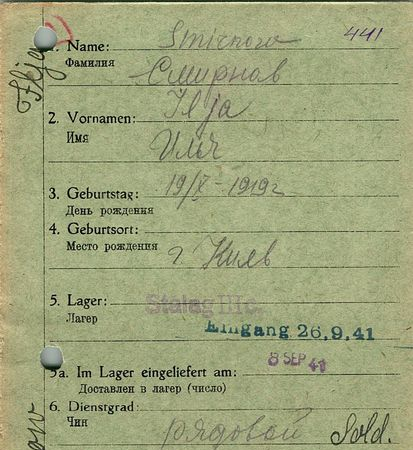 441
1. Name: Smirnow
Фамилия Смирнов
2. Vornamen: Ilja
Имя
3. Geburtstag: 19/X - 1919 г
День рождения
4. Geburtsort:
Место рождения г Киев
5. Lager: Stalag III c.
Лагерь
Eingang 26.9.41
8 SEP 41
5a. Im Lager eingeliefert am:
Доставлен в лагерь (число)
6. Dienstgrad:
Чин рядовой Sold.
Ilja